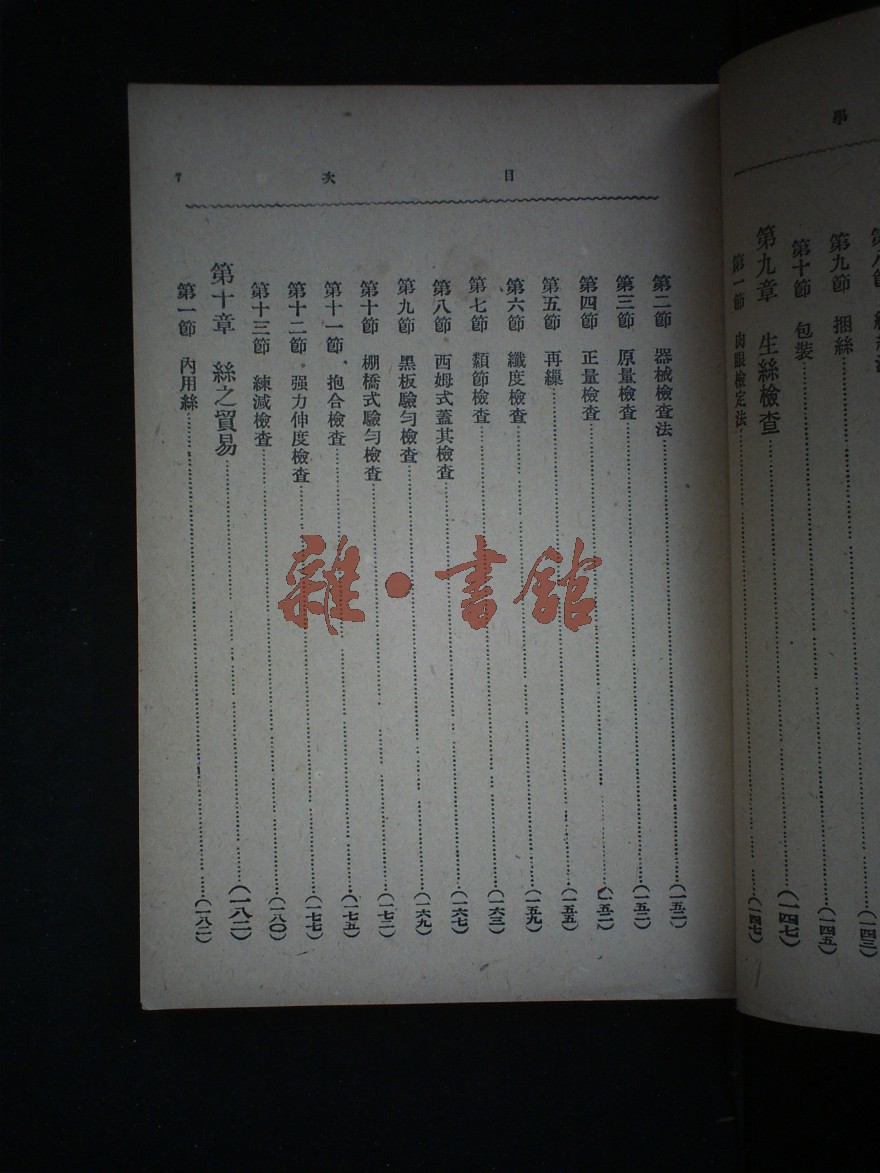 學
第九節 捆絲 (一四五)
第十節 包裝 (一四七)
第九章 生絲檢查 (一四七)
第一節 肉眼檢定法 (一四七)
目 次 7
第二節 器械檢查法 (一五二)
第三節 原量檢查 (一五二)
第四節 正量檢查 (一五二)
第五節 再繅 (一五五)
第六節 纖度檢查 (一五九)
第七節 纇節檢查 (一六三)
第八節 西姆式蓋其檢查 (一六七)
第九節 黑板驗勻檢查 (一六九)
第十節 棚橋式驗勻檢查 (一七二)
第十一節 抱合檢查 (一七五)
第十二節 强力伸度檢查 (一七七)
第十三節 練減檢查 (一八〇)
第十章 絲之貿易 (一八二)
第一節 內用絲 (一八二)
雜·書館